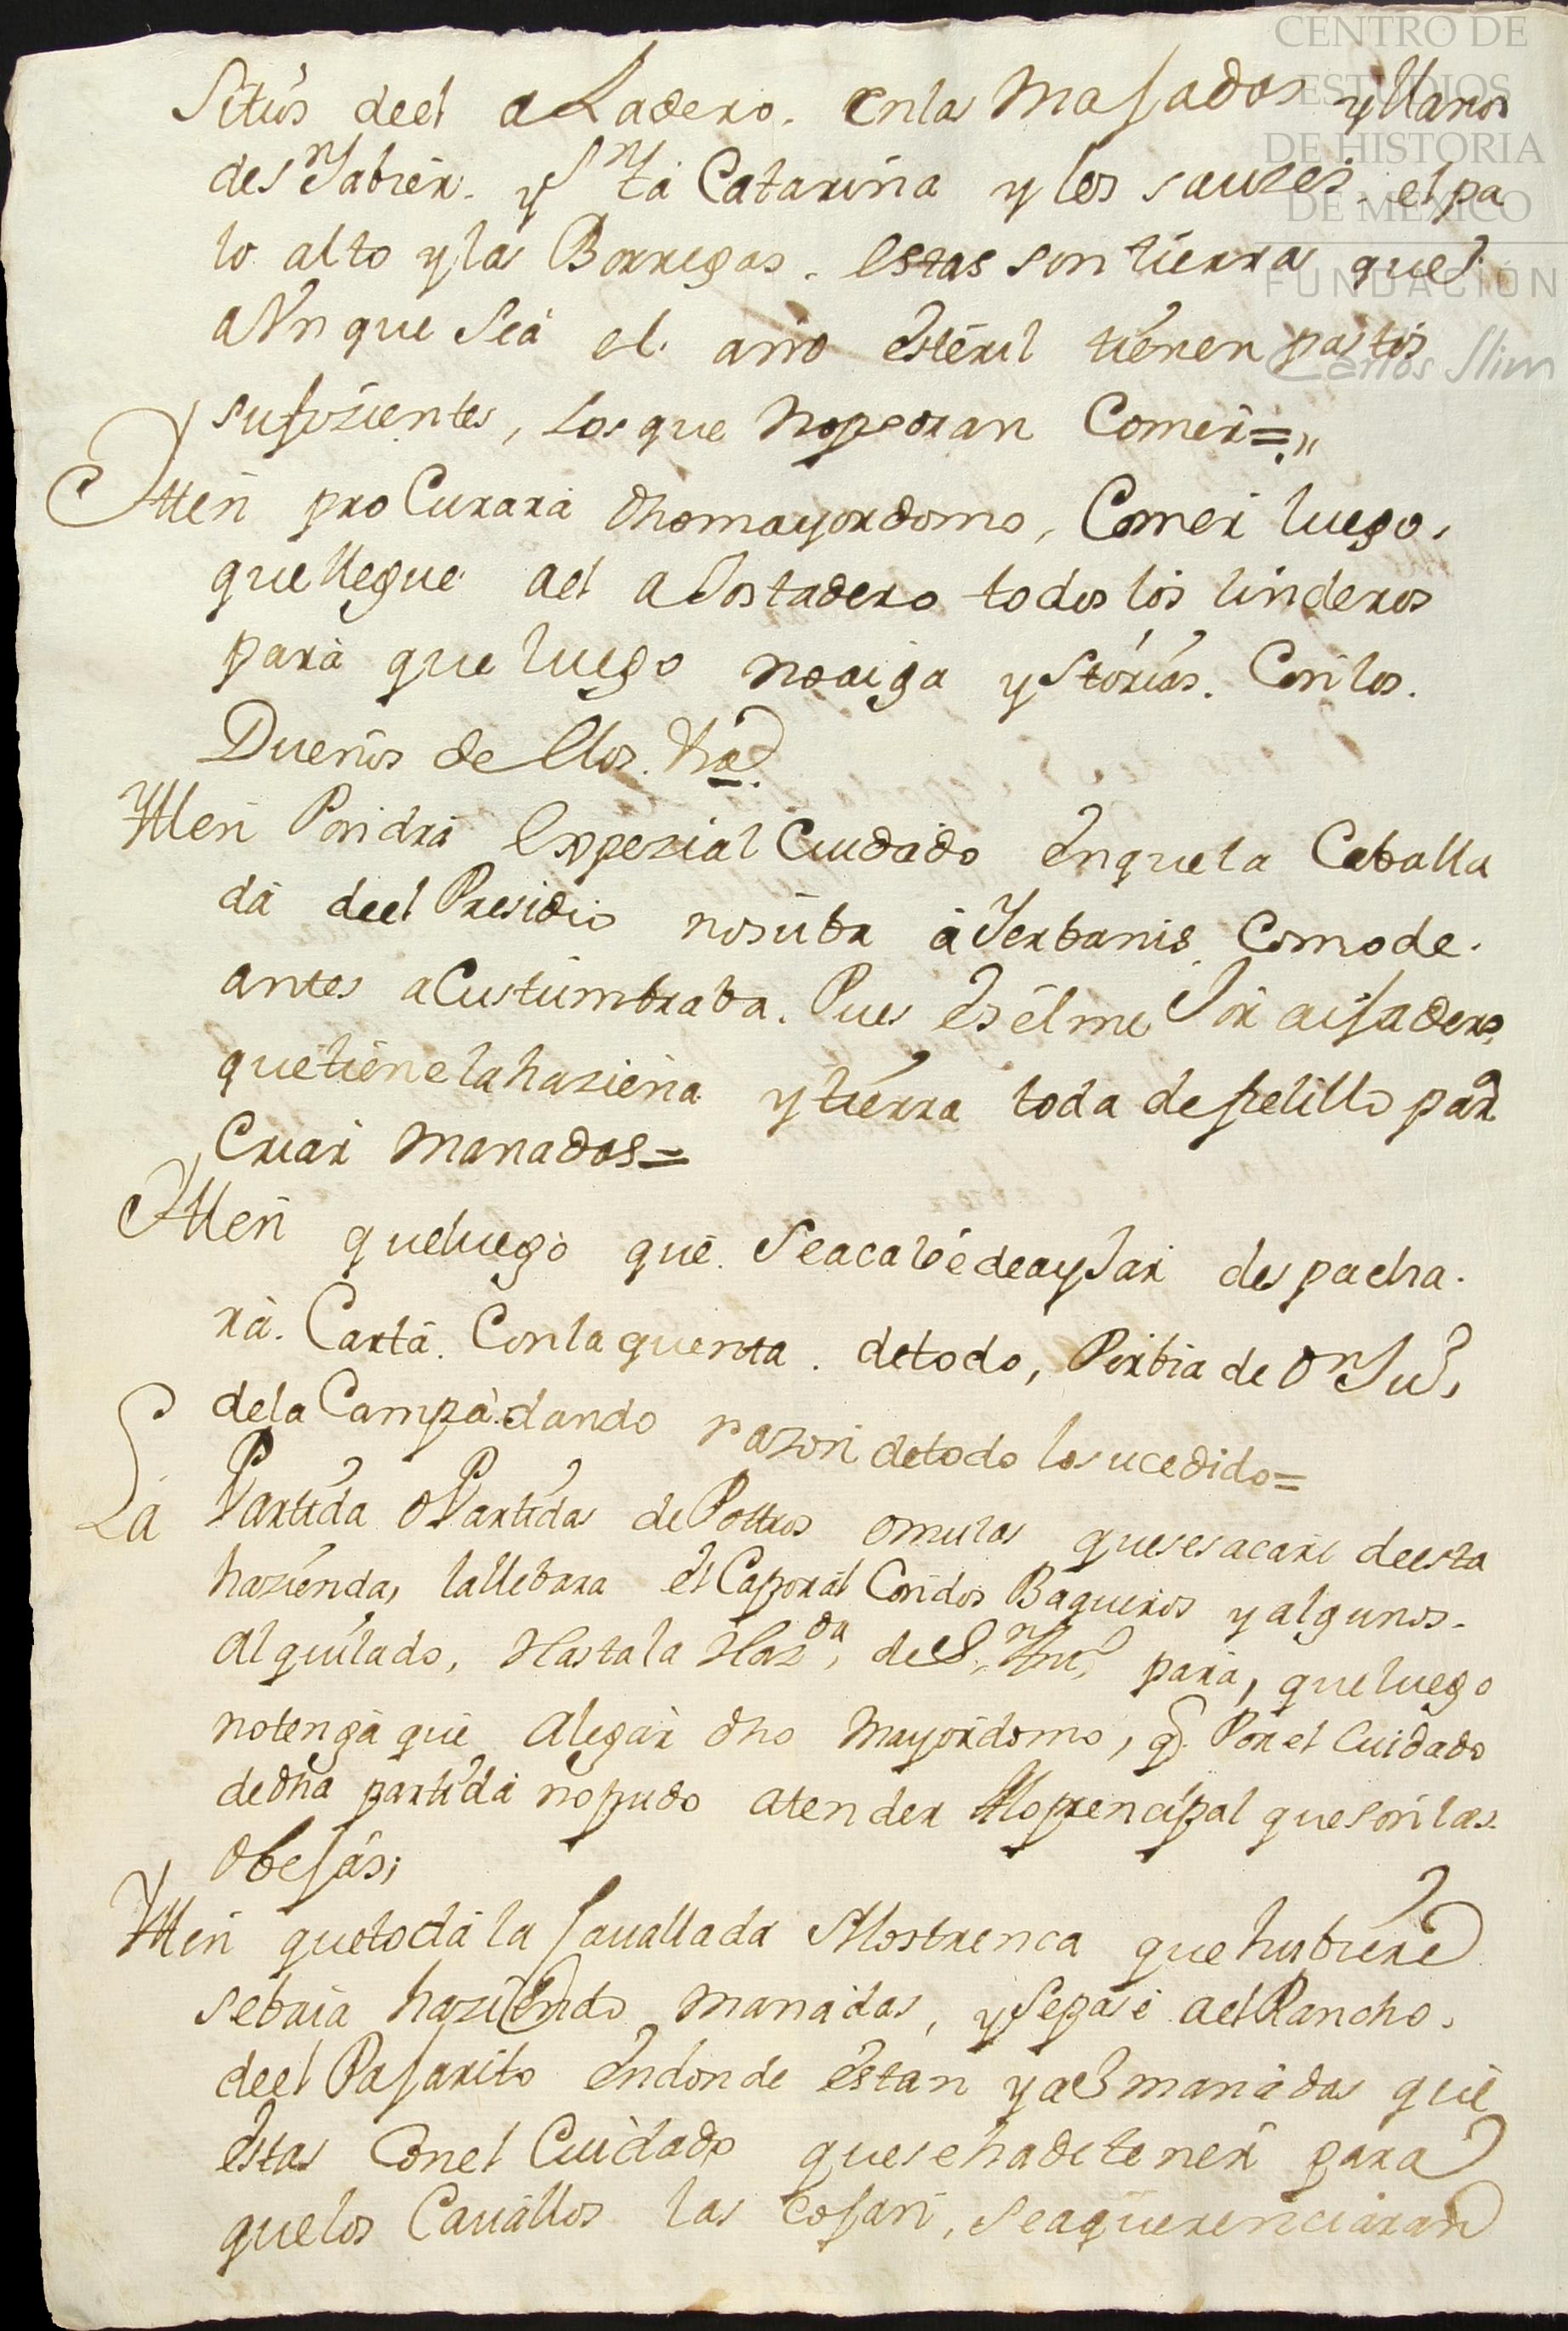 CENTRO DE
ESTUDIOS
DE HISTORIA
DE MÉXICO
FUNDACIÓN
Carlos Slim
Sitiós deel aJsadero. enlas Masadas yllanos
desn Jabiér. y Sta Catarina y los sauzes. elpa
lo alto ylas Borregas. estas son tierras quel
aVnque Seà el año estéril tiénen pastós
sufizientes, Los que no podran Comer=,,
Itten proCurará dho mayordomo, Comer luego,
quellegue ael aJostadero todos lós linderos
pará que luego no aiga ystórias. Con los.
Dueños de ellos.
Ytten Pondrá espezial Cuidado enquela Caballa
dá deel Presidio nosúba á Yerbanis Comode.
antes aCustúmbraba. Pues es élmeJor aisadero
quetiéne la haziéna ytiérra toda de pelillo para
Criar Manadas=
Itten queluego qué Seacabé deayJar despacha.
rá. Cartá Conlaquenta. detodo, Porbia de Dn Ju°,
dela Campa dando razon detodo losucedido=
Lá Partida o Partidas de Pottros omulas quesesacaré deesta
haziénda, lallebara el Caporál Condos Baqueros yalgunos.
Alquilado, Hastala Hazda, deSn. para, queluego
notengá qué Alegár dho Mayordomo, q. Por el Cuidado
dedha partida nopudo atender Aloprencipal queson las.
obeJás;
Ytten quetodá la Cauallada Mostrenca que hubiéré
sebaia haziendo manádas, ySepasé ael Rancho.
deel PaJarito endonde éstan ya 3 manádas qué
éstas Conel Cuidado quesehadetener para
quelos Cauállos las coJan, Seaquerenciaran